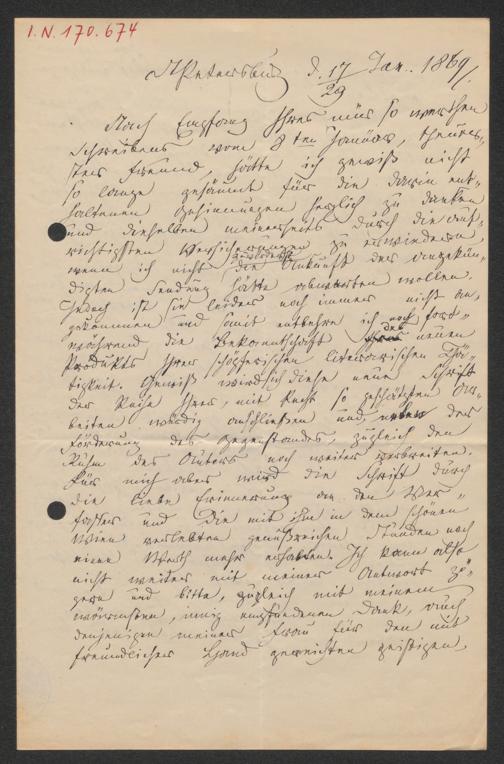 I.N. 170.674
St Petersburg d. 17/29 Jan. 1869/.
Nach Empfang Ihres mir so werthen
Schreibens vom 8ten Januar, theuer-
ster Freund, hätte ich gewiß nicht
so lange gesäumt für die darin ent-
haltenen Gesinnungen herzlich zu danken
und dieselben meinerseits durch die auf-
richtigsten Versicherungen zu erwiedern,
wenn ich nicht die Ankunft der angekün-
digten Sendung hätte abwarten wollen.
Jedoch ist sie leider noch immer nicht an-
gekommen und somit entbehre ich noch fort-
während die Bekanntschaft des neuen
Produkts Ihrer schöpferischen literarischen Thä-
tigkeit. Gewiß wird sich diese neue Schrift
der Reihe Ihrer, mit Recht so geschätzten Ar-
beiten würdig anschließen und neben der
Förderung des Gegenstandes, zugleich den
Ruhm des Autors noch weiter verbreiten.
Für mich aber wird die Schrift durch
die liebe Erinnerung an den Ver-
fasser und die mit ihm in dem schönen
Wien verlebten genußreichen Stunden noch
einen Werth mehr erhalten. Ich kann also
nicht weiter mit meiner Antwort zö-
gern und bitte, zugleich mit meinem
wärmsten, innig empfundenen Dank, auch
denjenigen meiner Frau für den mit
freundlicher Hand gereichten geistigen